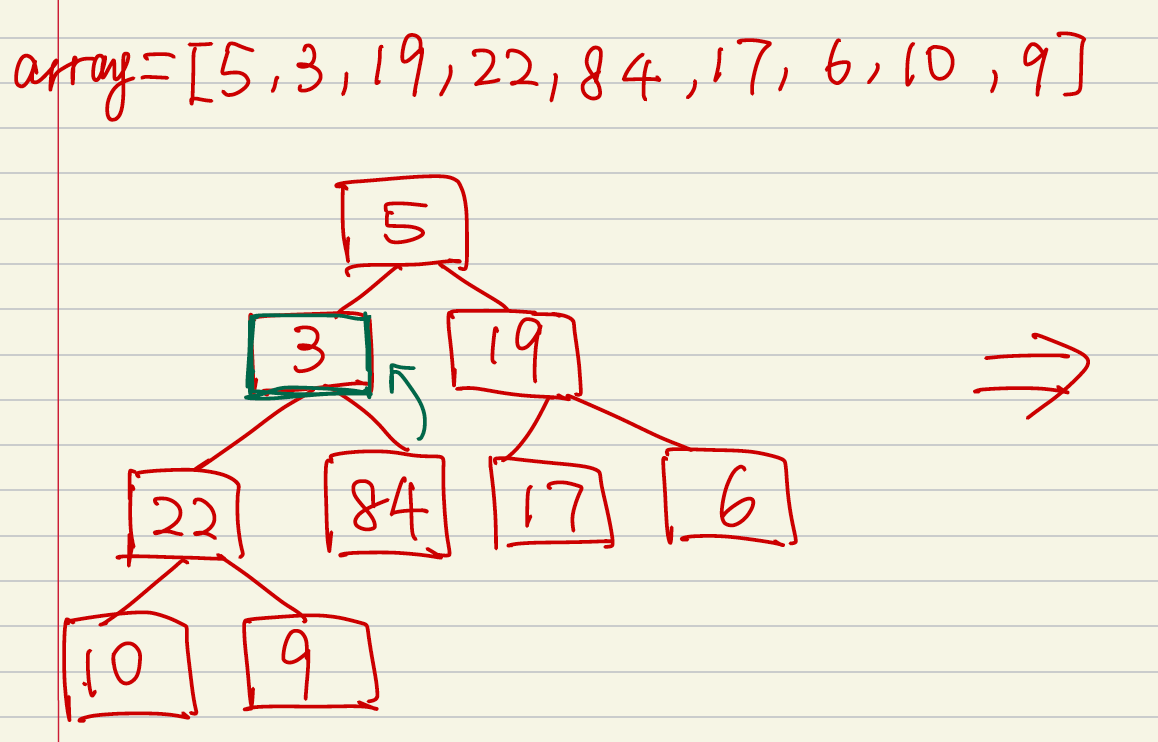 array=[5,3,19,22,84,17,6,10,9]
5
3 19
22 84 17 6
10 9